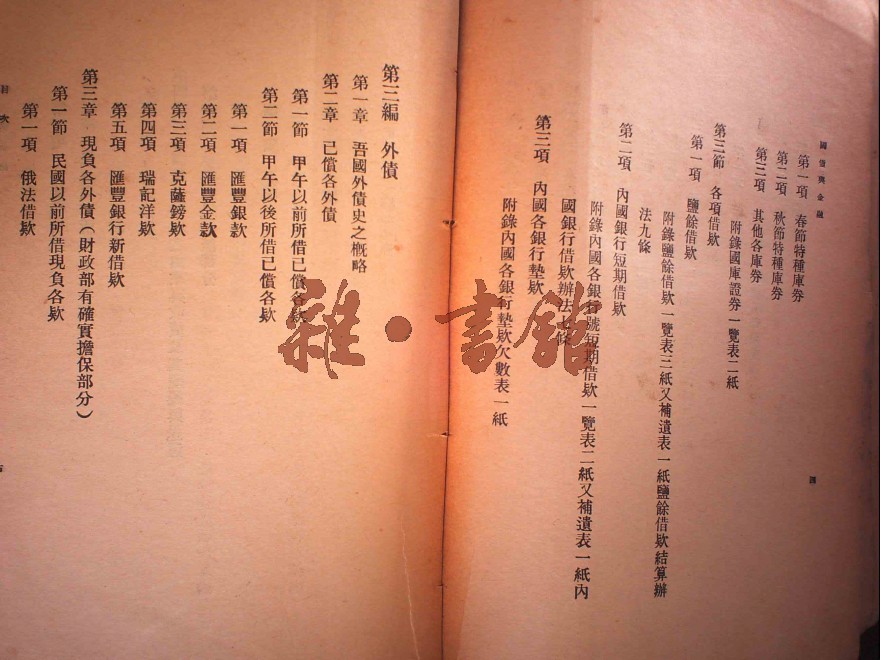 國債與金融
第一項　春節特種庫券
第二項　秋節特種庫券
第三項　其他各庫券
附錄國庫證券一覽表二紙
第三節　各項借欵
第一項　鹽餘借欵
附錄鹽餘借欵一覽表三紙又補遺表一紙鹽餘借欵結算辦
法九條
第二項　內國銀行短期借欵
附錄內國各銀行號短期借欵一覽表二紙又補遺表一紙內
國銀行借欵辦法七條
第三項　內國各銀行墊欵
附錄內國各銀行墊欵欠數表一紙
四
第三編　外債
第一章　吾國外債史之概略
第二章　已償各外債
第一節　甲午以前所借已償各欵
第二節　甲午以後所借已償各欵
第一項　匯豐銀款
第二項　匯豐金款
第三項　克薩鎊欵
第四項　瑞記洋欵
第五項　匯豐銀行新借欵
第三章　現負各外債（財政部有確實擔保部分）
第一節　民國以前所借現負各欵
第一項　俄法借欵
目次
雜·書館